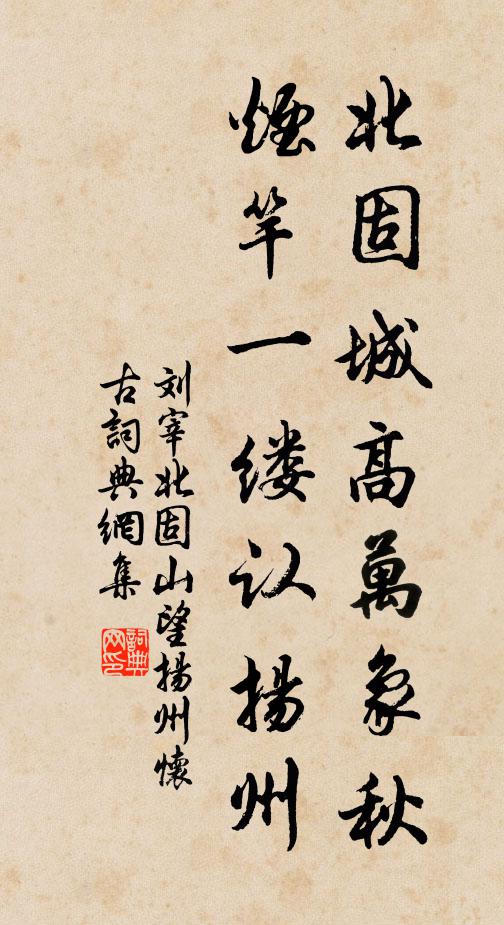 北固城高萬象秋
煙竿一缕认揚州
刘宰北固山望揚州懷
古詞典網集
詞典网印